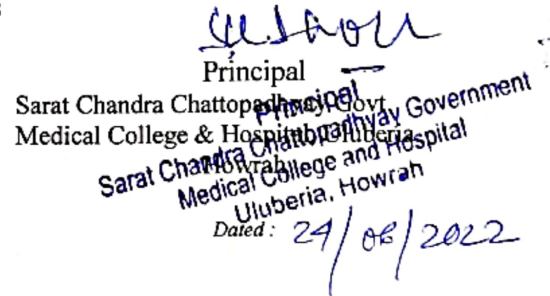 Principal
Sarat Chandra Chattopadhyay Govt.
Medical College & Hospital, Uluberia
Howrah
Principal
Sarat Chandra Chattopadhyay Government
Medical College and Hospital
Uluberia, Howrah
Dated : 24/08/2022